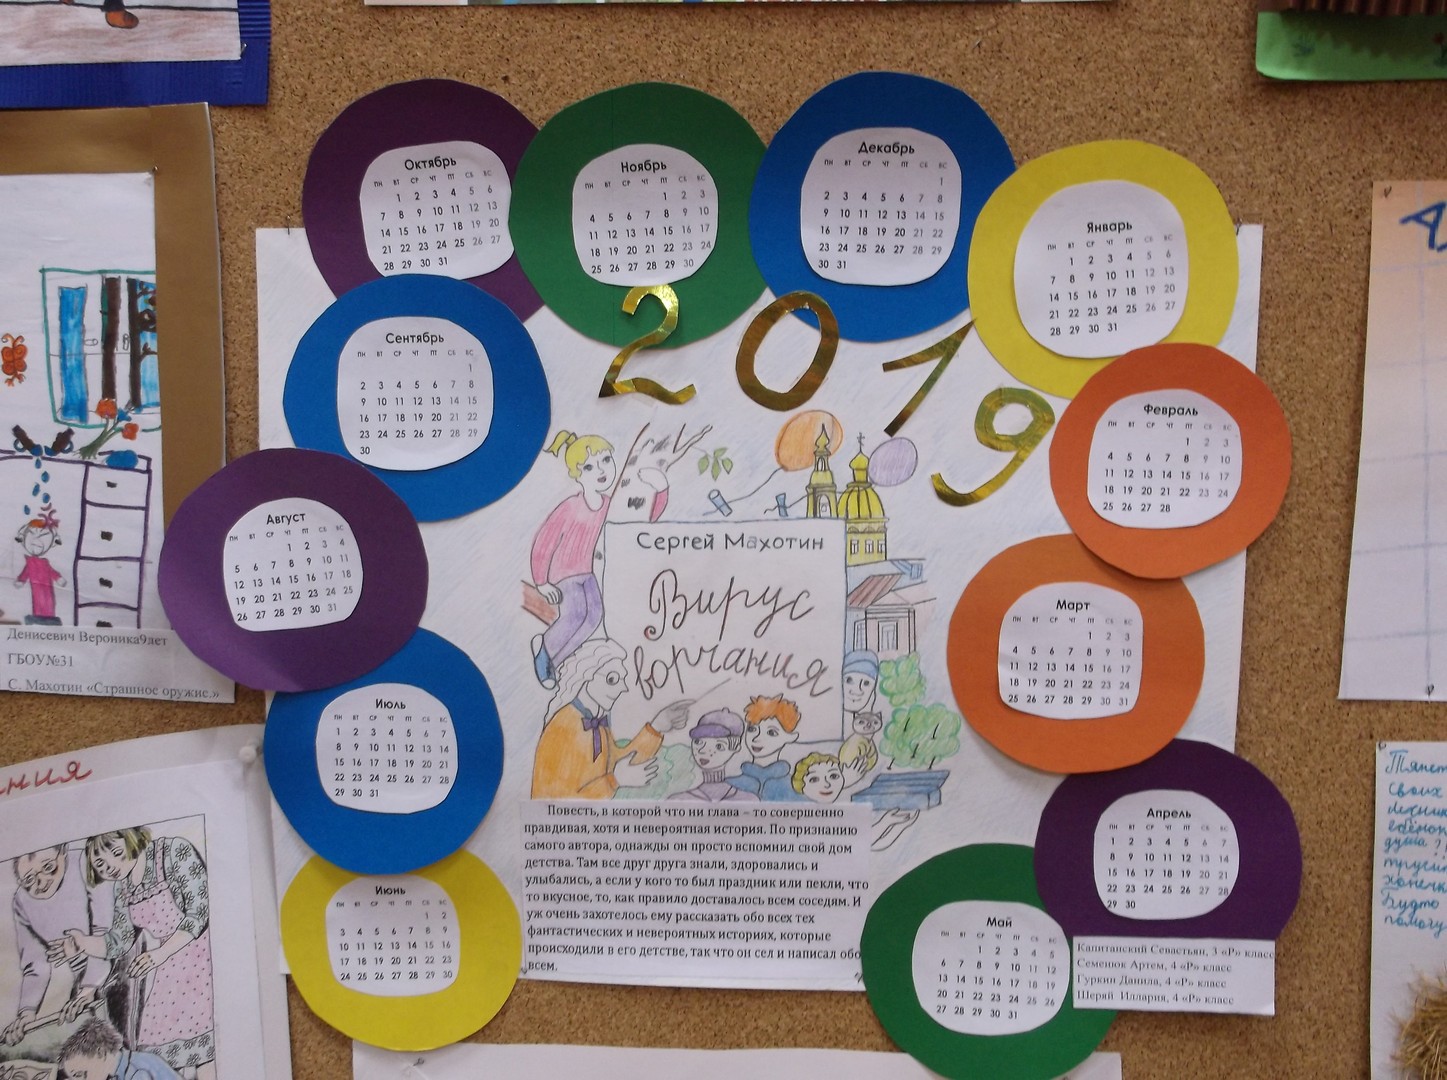 Октябрь
пн вт ср чт пт сб вс
1 2 3 4 5 6
7 8 9 10 11 12 13
14 15 16 17 18 19 20
21 22 23 24 25 26 27
28 29 30 31
Ноябрь
пн вт ср чт пт сб вс
1 2 3
4 5 6 7 8 9 10
11 12 13 14 15 16 17
18 19 20 21 22 23 24
25 26 27 28 29 30
Декабрь
пн вт ср чт пт сб вс
1
2 3 4 5 6 7 8
9 10 11 12 13 14 15
16 17 18 19 20 21 22
23 24 25 26 27 28 29
30 31
Январь
пн вт ср чт пт сб вс
1 2 3 4 5 6
7 8 9 10 11 12 13
14 15 16 17 18 19 20
21 22 23 24 25 26 27
28 29 30 31
2019
Сентябрь
пн вт ср чт пт сб вс
1
2 3 4 5 6 7 8
9 10 11 12 13 14 15
16 17 18 19 20 21 22
23 24 25 26 27 28 29
30
Февраль
пн вт ср чт пт сб вс
1 2 3
4 5 6 7 8 9 10
11 12 13 14 15 16 17
18 19 20 21 22 23 24
25 26 27 28
Август
пн вт ср чт пт сб вс
1 2 3 4
5 6 7 8 9 10 11
12 13 14 15 16 17 18
19 20 21 22 23 24 25
26 27 28 29 30 31
Сергей Махотин
Вирус
ворчания
Март
пн вт ср чт пт сб вс
1 2 3
4 5 6 7 8 9 10
11 12 13 14 15 16 17
18 19 20 21 22 23 24
25 26 27 28 29 30 31
Денисевич Вероника9лет
ГБОУ№31
С. Махотин «Страшное оружие.»
Июль
пн вт ср чт пт сб вс
1 2 3 4 5 6 7
8 9 10 11 12 13 14
15 16 17 18 19 20 21
22 23 24 25 26 27 28
29 30 31
Апрель
пн вт ср чт пт сб вс
1 2 3 4 5 6 7
8 9 10 11 12 13 14
15 16 17 18 19 20 21
22 23 24 25 26 27 28
29 30
Повесть, в которой что ни глава – то совершенно
правдивая, хотя и невероятная история. По признанию
самого автора, однажды он просто вспомнил свой дом
детства. Там все друг друга знали, здоровались и
улыбались, а если у кого то был праздник или пекли, что
то вкусное, то, как правило доставалось всем соседям. И
уж очень захотелось ему рассказать обо всех тех
фантастических и невероятных историях, которые
происходили в его детстве, так что он сел и написал обо
всем.
Июнь
пн вт ср чт пт сб вс
1 2
3 4 5 6 7 8 9
10 11 12 13 14 15 16
17 18 19 20 21 22 23
24 25 26 27 28 29 30
Май
пн вт ср чт пт сб вс
1 2 3 4 5
6 7 8 9 10 11 12
13 14 15 16 17 18 19
20 21 22 23 24 25 26
27 28 29 30 31
Капитанский Севастьян, 3 «Р» класс
Семенюк Артем, 4 «Р» класс
Гуркин Данила, 4 «Р» класс
Шеряй Иллария, 4 «Р» класс
своих
душа?!
Будто